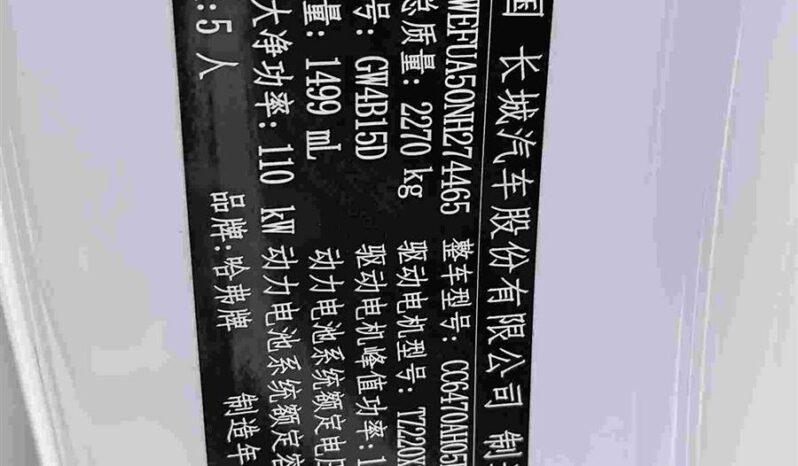 国 长城汽车股份有限公司 制
WEFUA50NH274465 整车型号: CC6470AH05
总质量: 2270 kg 驱动电机型号: TZ220X
号: GW4B15D 驱动电机峰值功率: 1
量: 1499 mL 动力电池系统额定电压
大净功率: 110 kW 动力电池系统额定容
:5 人 品牌:哈弗牌 制造年